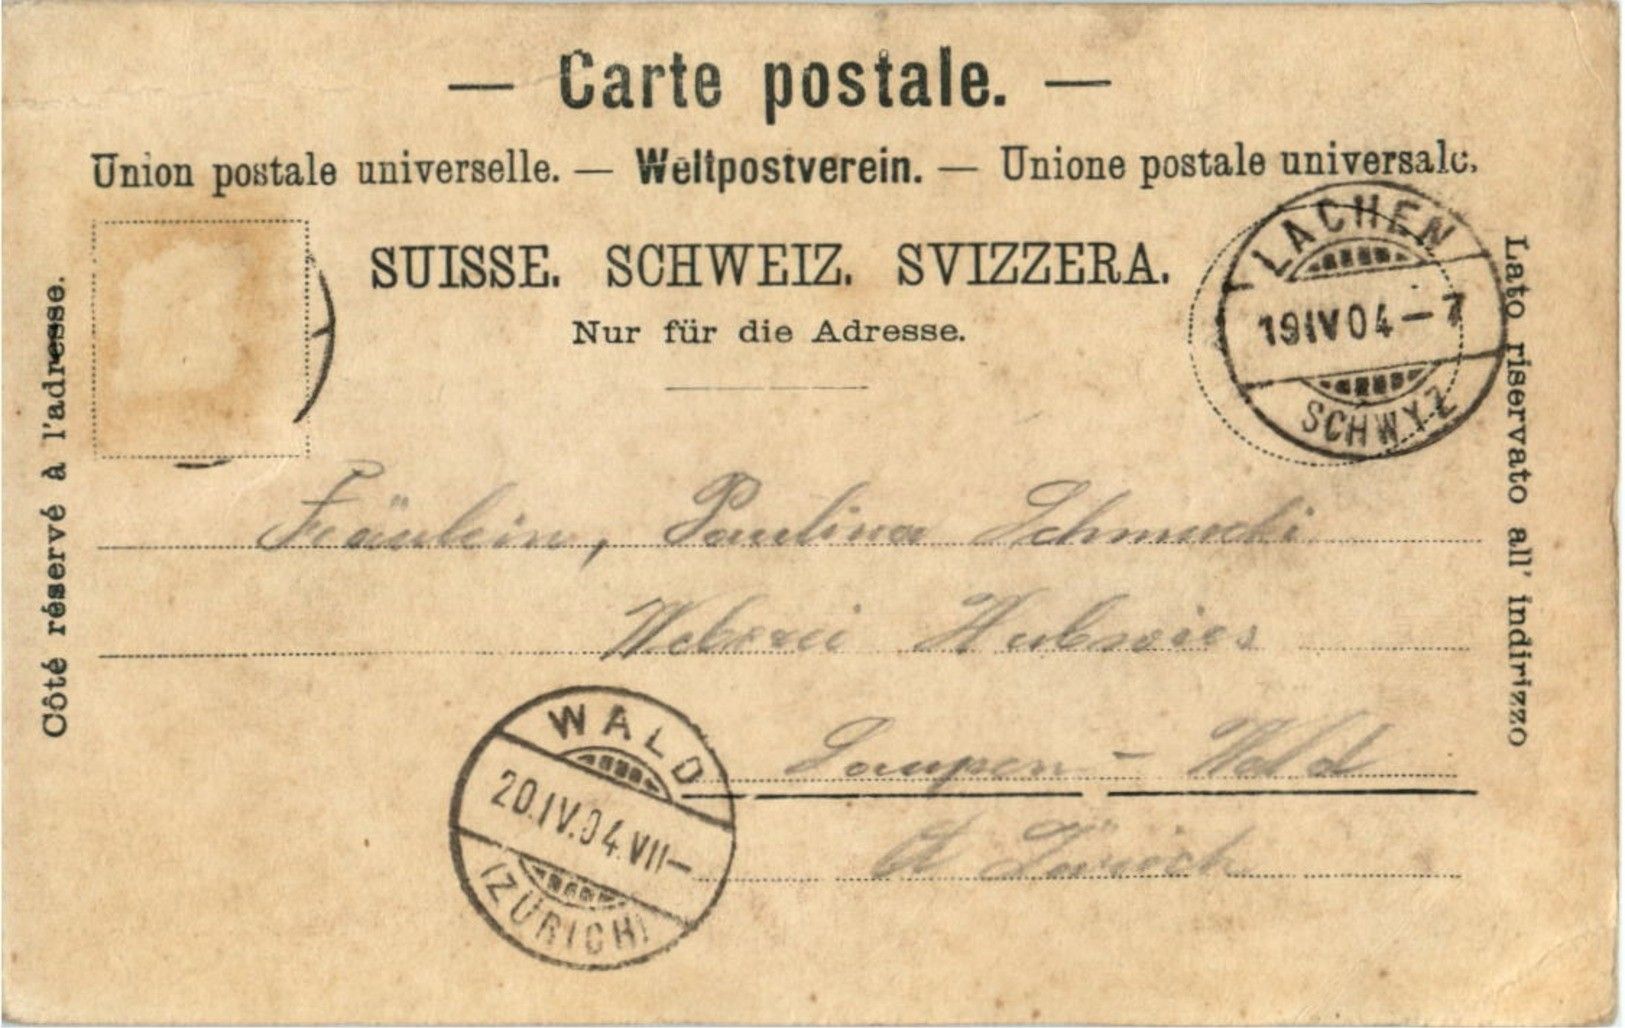 — Carte postale. —
Union postale universelle. — Weltpostverein. — Unione postale universale.
SUISSE. SCHWEIZ. SVIZZERA.
Nur für die Adresse.
Côté réservé à l'adresse.
Lato riservato all' indirizzo
LACHEN
19 IV 04 – 7
SCHWYZ
Fräulein, Paulina Schmucki
Weberei Hubwies
Laupen – Wald
Kt Zürich
WALD
20.IV.04.VII–
(ZÜRICH)